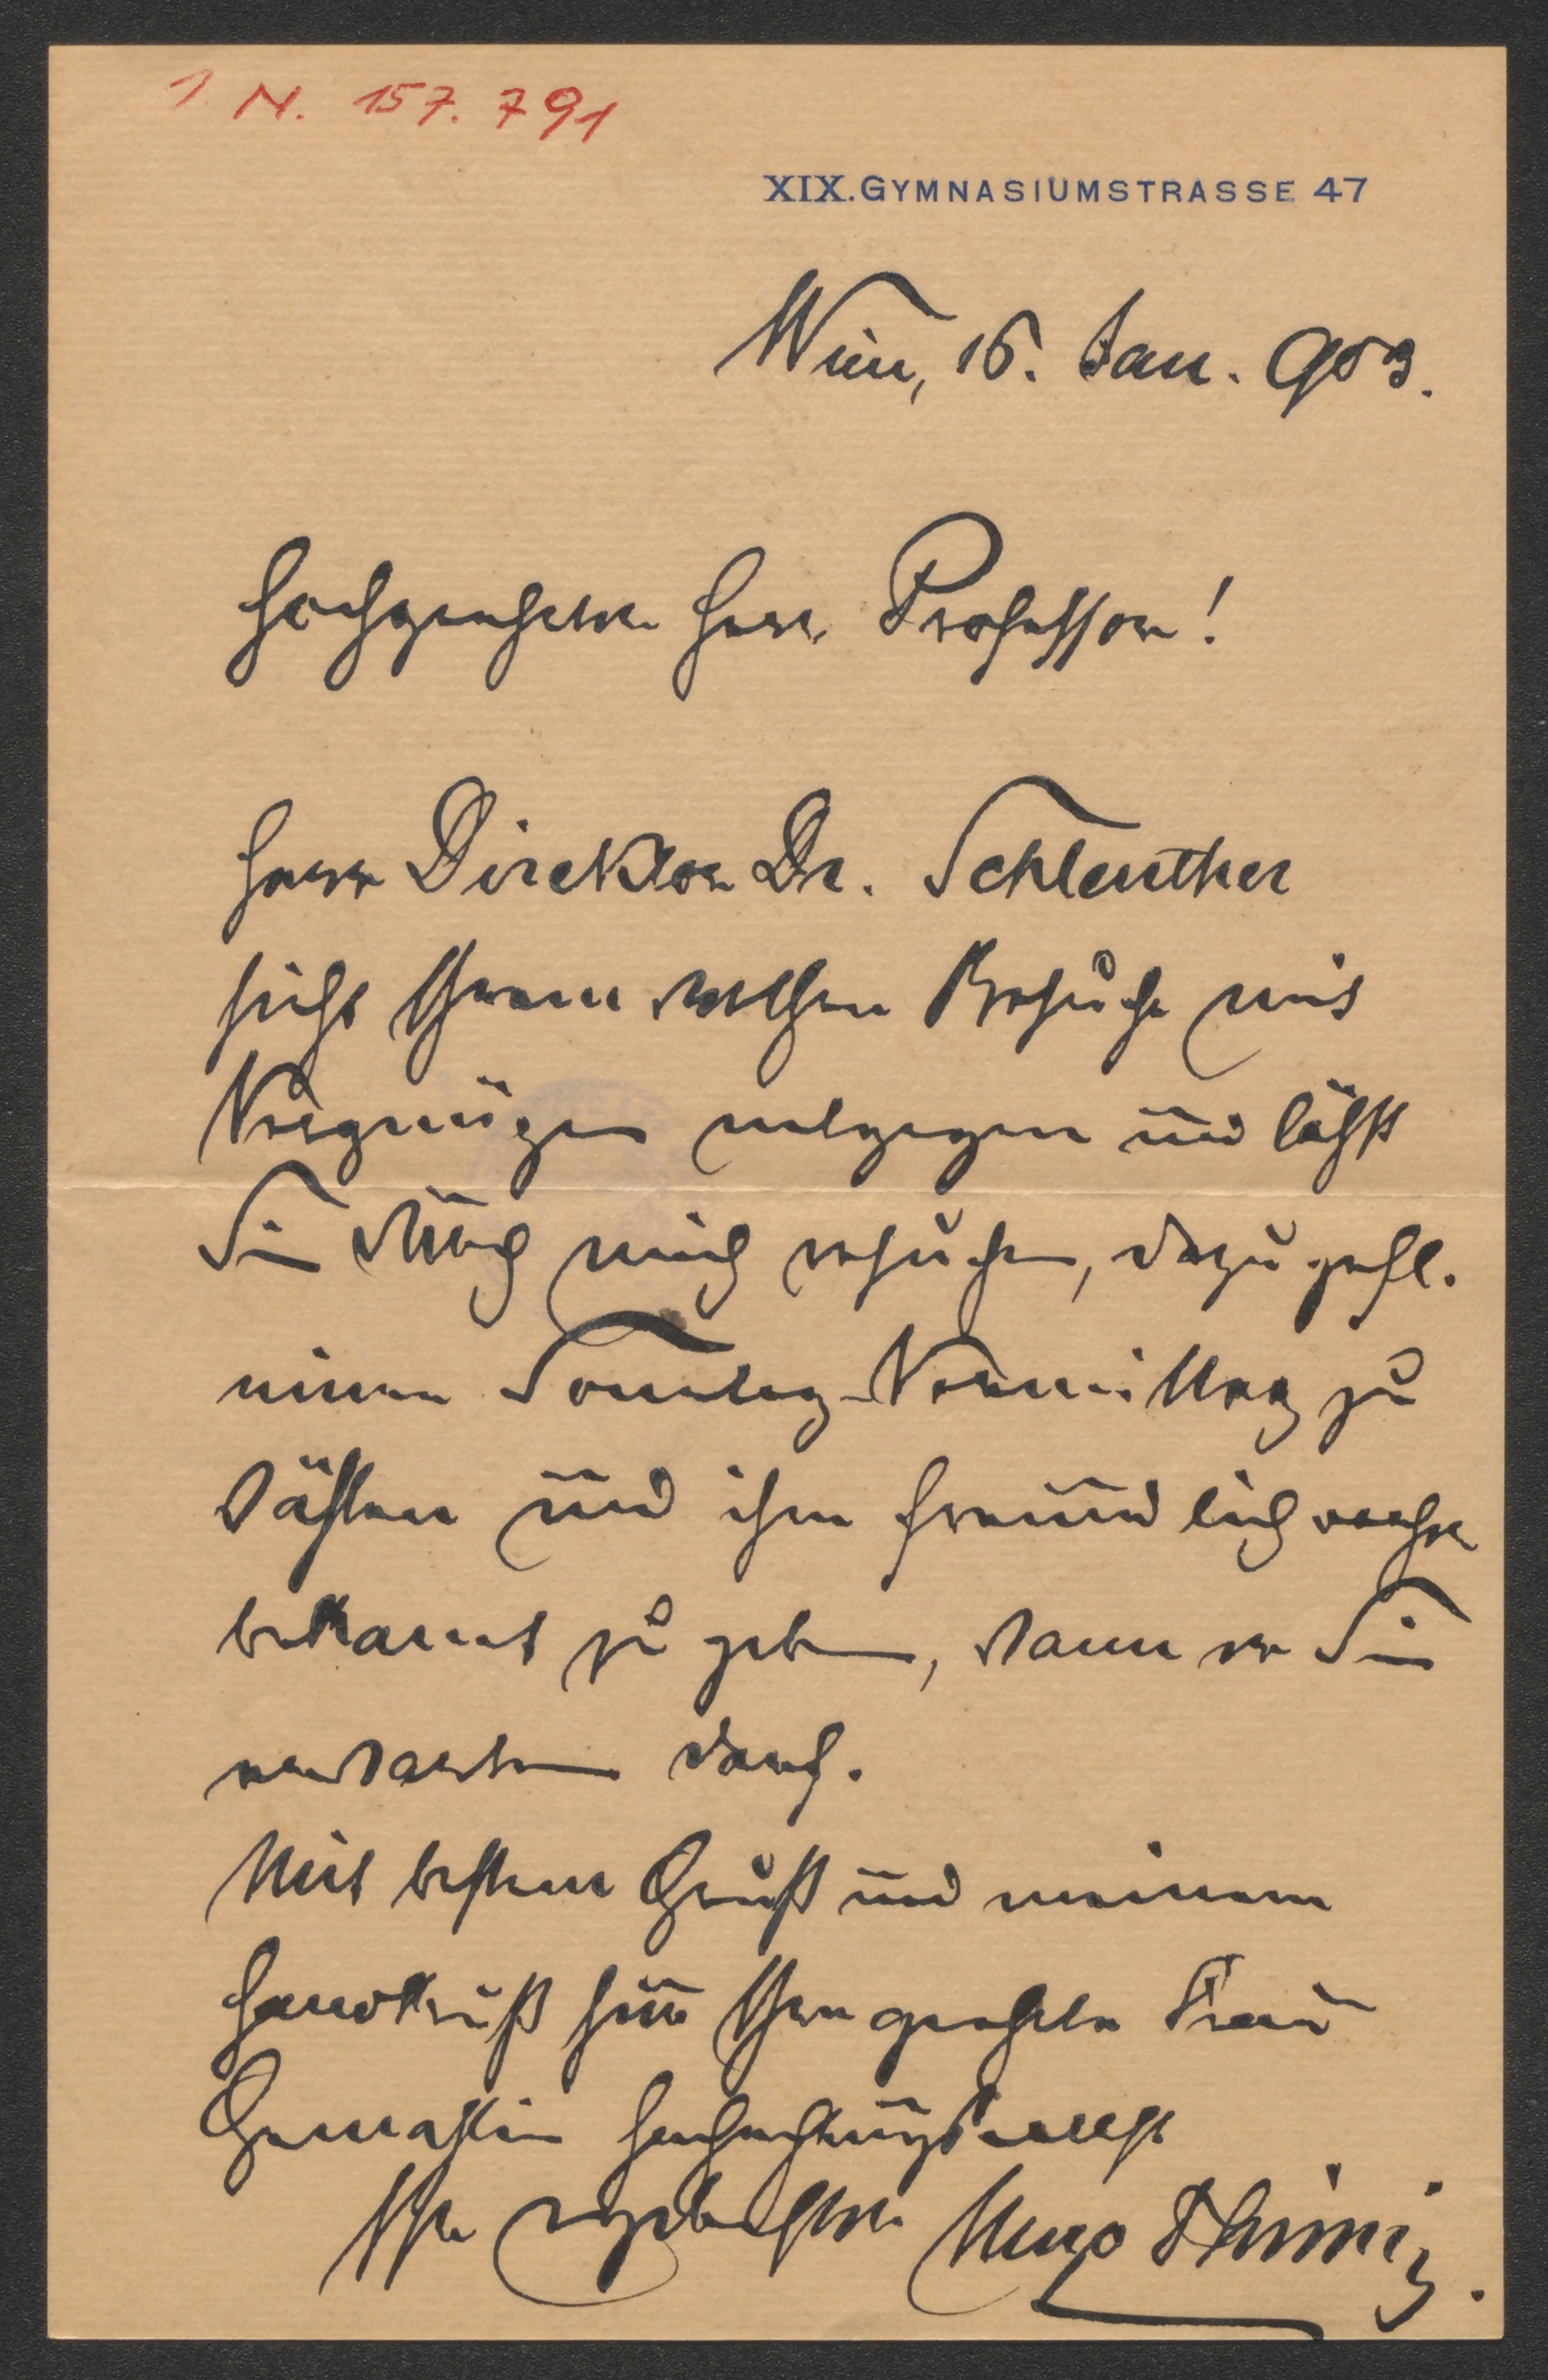 I. N. 157.791
XIX. GYMNASIUMSTRASSE 47
Wien, 16. Jan. 903.
Hochgeehrter Herr Professor!
Herr Direktor Dr. Schlenther
sieht Ihrem werthen Besuche mit
Vergnügen entgegen und läßt
Sie durch mich ersuchen, dazu gefl.
einen Sonntag-Vormittag zu
wählen und ihm freundlichst
bekannt zu geben, wann er Sie
erwarten darf.
Mit bestem Gruß und meinem
Handkuß für Ihre geehrte Frau
Gemahlin hochachtungsvollst
Ihr ergebenster Hugo Thimig.